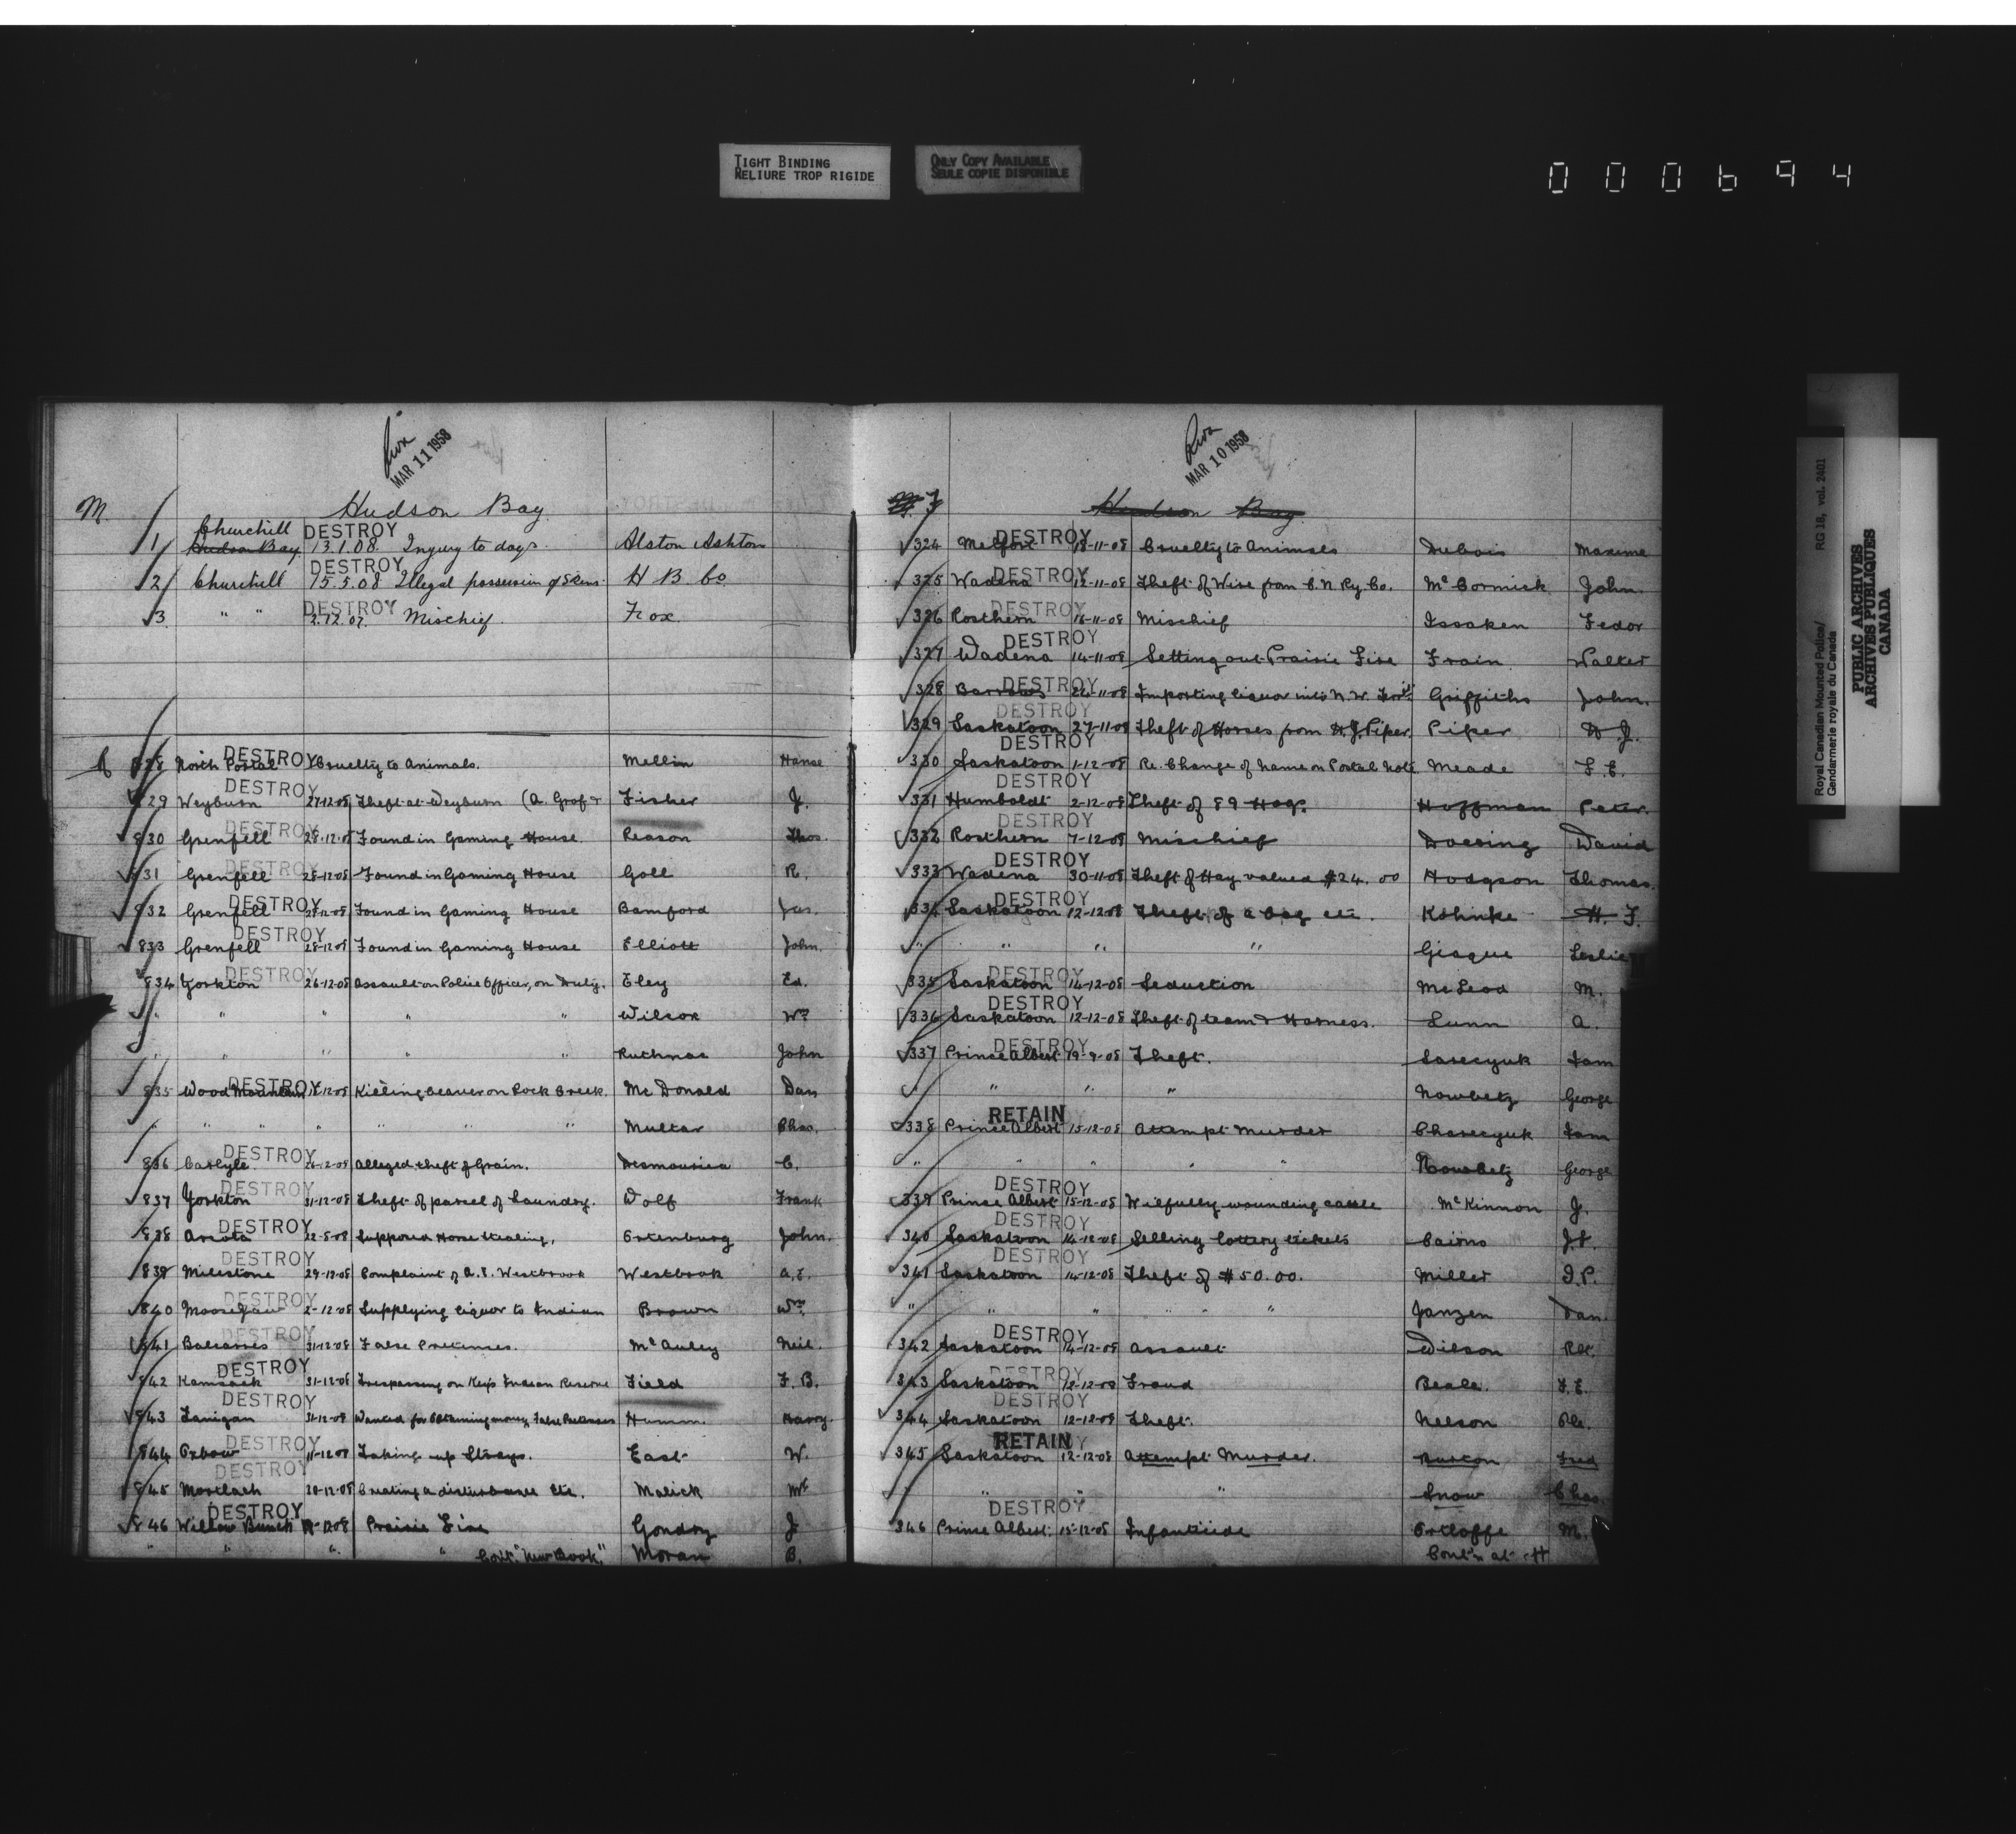 TIGHT BINDING
RELIURE TROP RIGIDE
ONLY COPY AVAILABLE
SEULE COPIE DISPONIBLE
000694
MAR 11 1958
M Hudson Bay
Churchill DESTROY
1 Hudson Bay 13.1.08. Injury to dogs. Alston Ashton
DESTROY
2 Churchill 15.5.08 Illegal possession of Skins. H. B. Co.
DESTROY
3 " " 2.12.07. Mischief. Fox.
DESTROY
828 North Portal Cruelty to Animals. Mellin Hanse
DESTROY
829 Weyburn 27-12-08 Theft at Weyburn (A. Graf & Fisher J.
DESTROY
830 Grenfell 28-12-08 Found in Gaming House. Reason Thos.
DESTROY
831 Grenfell 28-12-08 Found in Gaming House Goll R.
DESTROY
832 Grenfell 28-12-08 Found in Gaming House Bamford Jas.
DESTROY
833 Grenfell 28-12-08 Found in Gaming House Elliott John.
DESTROY
834 Yorkton 26-12-08 Assault on Police Officer, on Duty. Eley Ed.
" " " " " Wilson Wm
" " " " " John
DESTROY
835 Wood Mountain -12-08 Killing beaver on Rock Creek. Mc Donald Dan
" " " " " " " Multar Chas.
DESTROY
836 Carlyle 26-12-08 Alleged theft of Grain. C.
DESTROY
837 Yorkton 31-12-08 Theft of parcel of Laundry. Wolf Frank
DESTROY
838 Arcola 12-5-08 Supposed Horse Stealing. Ortenburg John.
DESTROY
839 Milestone 29-12-08 Complaint of A. E. Westbrook Westbrook A. E.
DESTROY
840 Moosejaw 2-12-08 Supplying liquor to Indian Brown Wm
DESTROY
841 Balcarres 31-12-08 False Pretenses. Mc Auley Neil.
DESTROY
842 Kamsack 31-12-08 Trespassing on Keys Indian Reserve Field F. B.
DESTROY
843 Lanigan 31-12-08 Wanted for Obtaining money False Pretenses Humm. Harry.
DESTROY
844 Oxbow 11-12-08 Taking up Strays. East W.
DESTROY
845 Mortlach 20-12-08 Creating a disturbance etc. Malick
DESTROY
846 Willow Bunch -12-08 Prairie Fire Gondry J
" " " " Cont. "New Book." Moran B.
MAR 10 1958
F Hudson Bay
DESTROY
324 Melfort 18-11-08 Cruelty to Animals Dubois Maxime
DESTROY
325 Wadena 12-11-08 Theft of Wire from C. N. Ry. Co. Mc Cormick John.
DESTROY
326 Rosthern 16-11-08 Mischief Issaken Fedor
DESTROY
327 Wadena 14-11-08 Setting out Prairie Fire Frain. Walter
DESTROY
328 Barrows 24-11-08 Importing liquor into N. W. Griffiths John.
DESTROY
329 Saskatoon 27-11-08 Theft of Horses from H. J. Piper. Piper H J.
DESTROY
330 Saskatoon 1-12-08 Re. Change of name on Postal Note. Meade F. E.
DESTROY
331 Humboldt 2-12-08 Theft of 89 Hogs. Hoffman Peter.
DESTROY
332 Rosthern 7-12-08 Mischief Doering David
DESTROY
333 Wadena 30-11-08 Theft of Hay valued $24.00 Hodgson Thomas.
DESTROY
334 Saskatoon 12-12-08 Theft of a bag etc. Kohnke H. F.
" " " " Leslie
DESTROY
335 Saskatoon 14-12-08 Seduction McLeod M.
DESTROY
336 Saskatoon 12-12-08 Theft of team & Harness. Lunn A.
DESTROY
337 Prince Albert 19-9-08 Theft. Sam
" " " " Nowbetz George
RETAIN
338 Prince Albert 15-12-08 Attempt Murder Sam
" " " " " Nowbetz George
DESTROY
339 Prince Albert 15-12-08 Wilfully wounding cattle Mc Kinnon J.
DESTROY
340 Saskatoon 14-12-08 Selling lottery tickets Cairns J. F.
DESTROY
341 Saskatoon 14-12-08 Theft of $50.00. Miller I. P.
" " " " " " Janzen Dan.
DESTROY
342 Saskatoon 14-12-08 Assault Wilson Robt.
DESTROY
343 Saskatoon 12-12-08 Fraud Beale. F. E.
DESTROY
344 Saskatoon 12-12-08 Theft. Nelson
RETAIN
345 Saskatoon 12-12-08 Attempt Murder. Burton Fred
" " " " Snow Chas
DESTROY
346 Prince Albert. 15-12-08 Infanticide Ortloffe M.
Cont'n at H
Royal Canadian Mounted Police/ RG 18, vol. 2401
Gendarmerie royale du Canada
PUBLIC ARCHIVES
ARCHIVES PUBLIQUES
CANADA